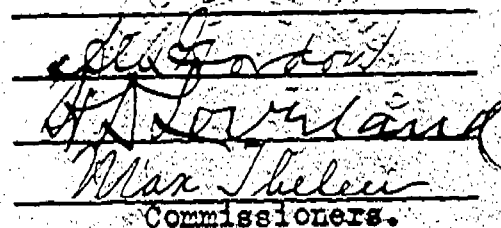 H D Loveland
Max Thelen
Commissioners.